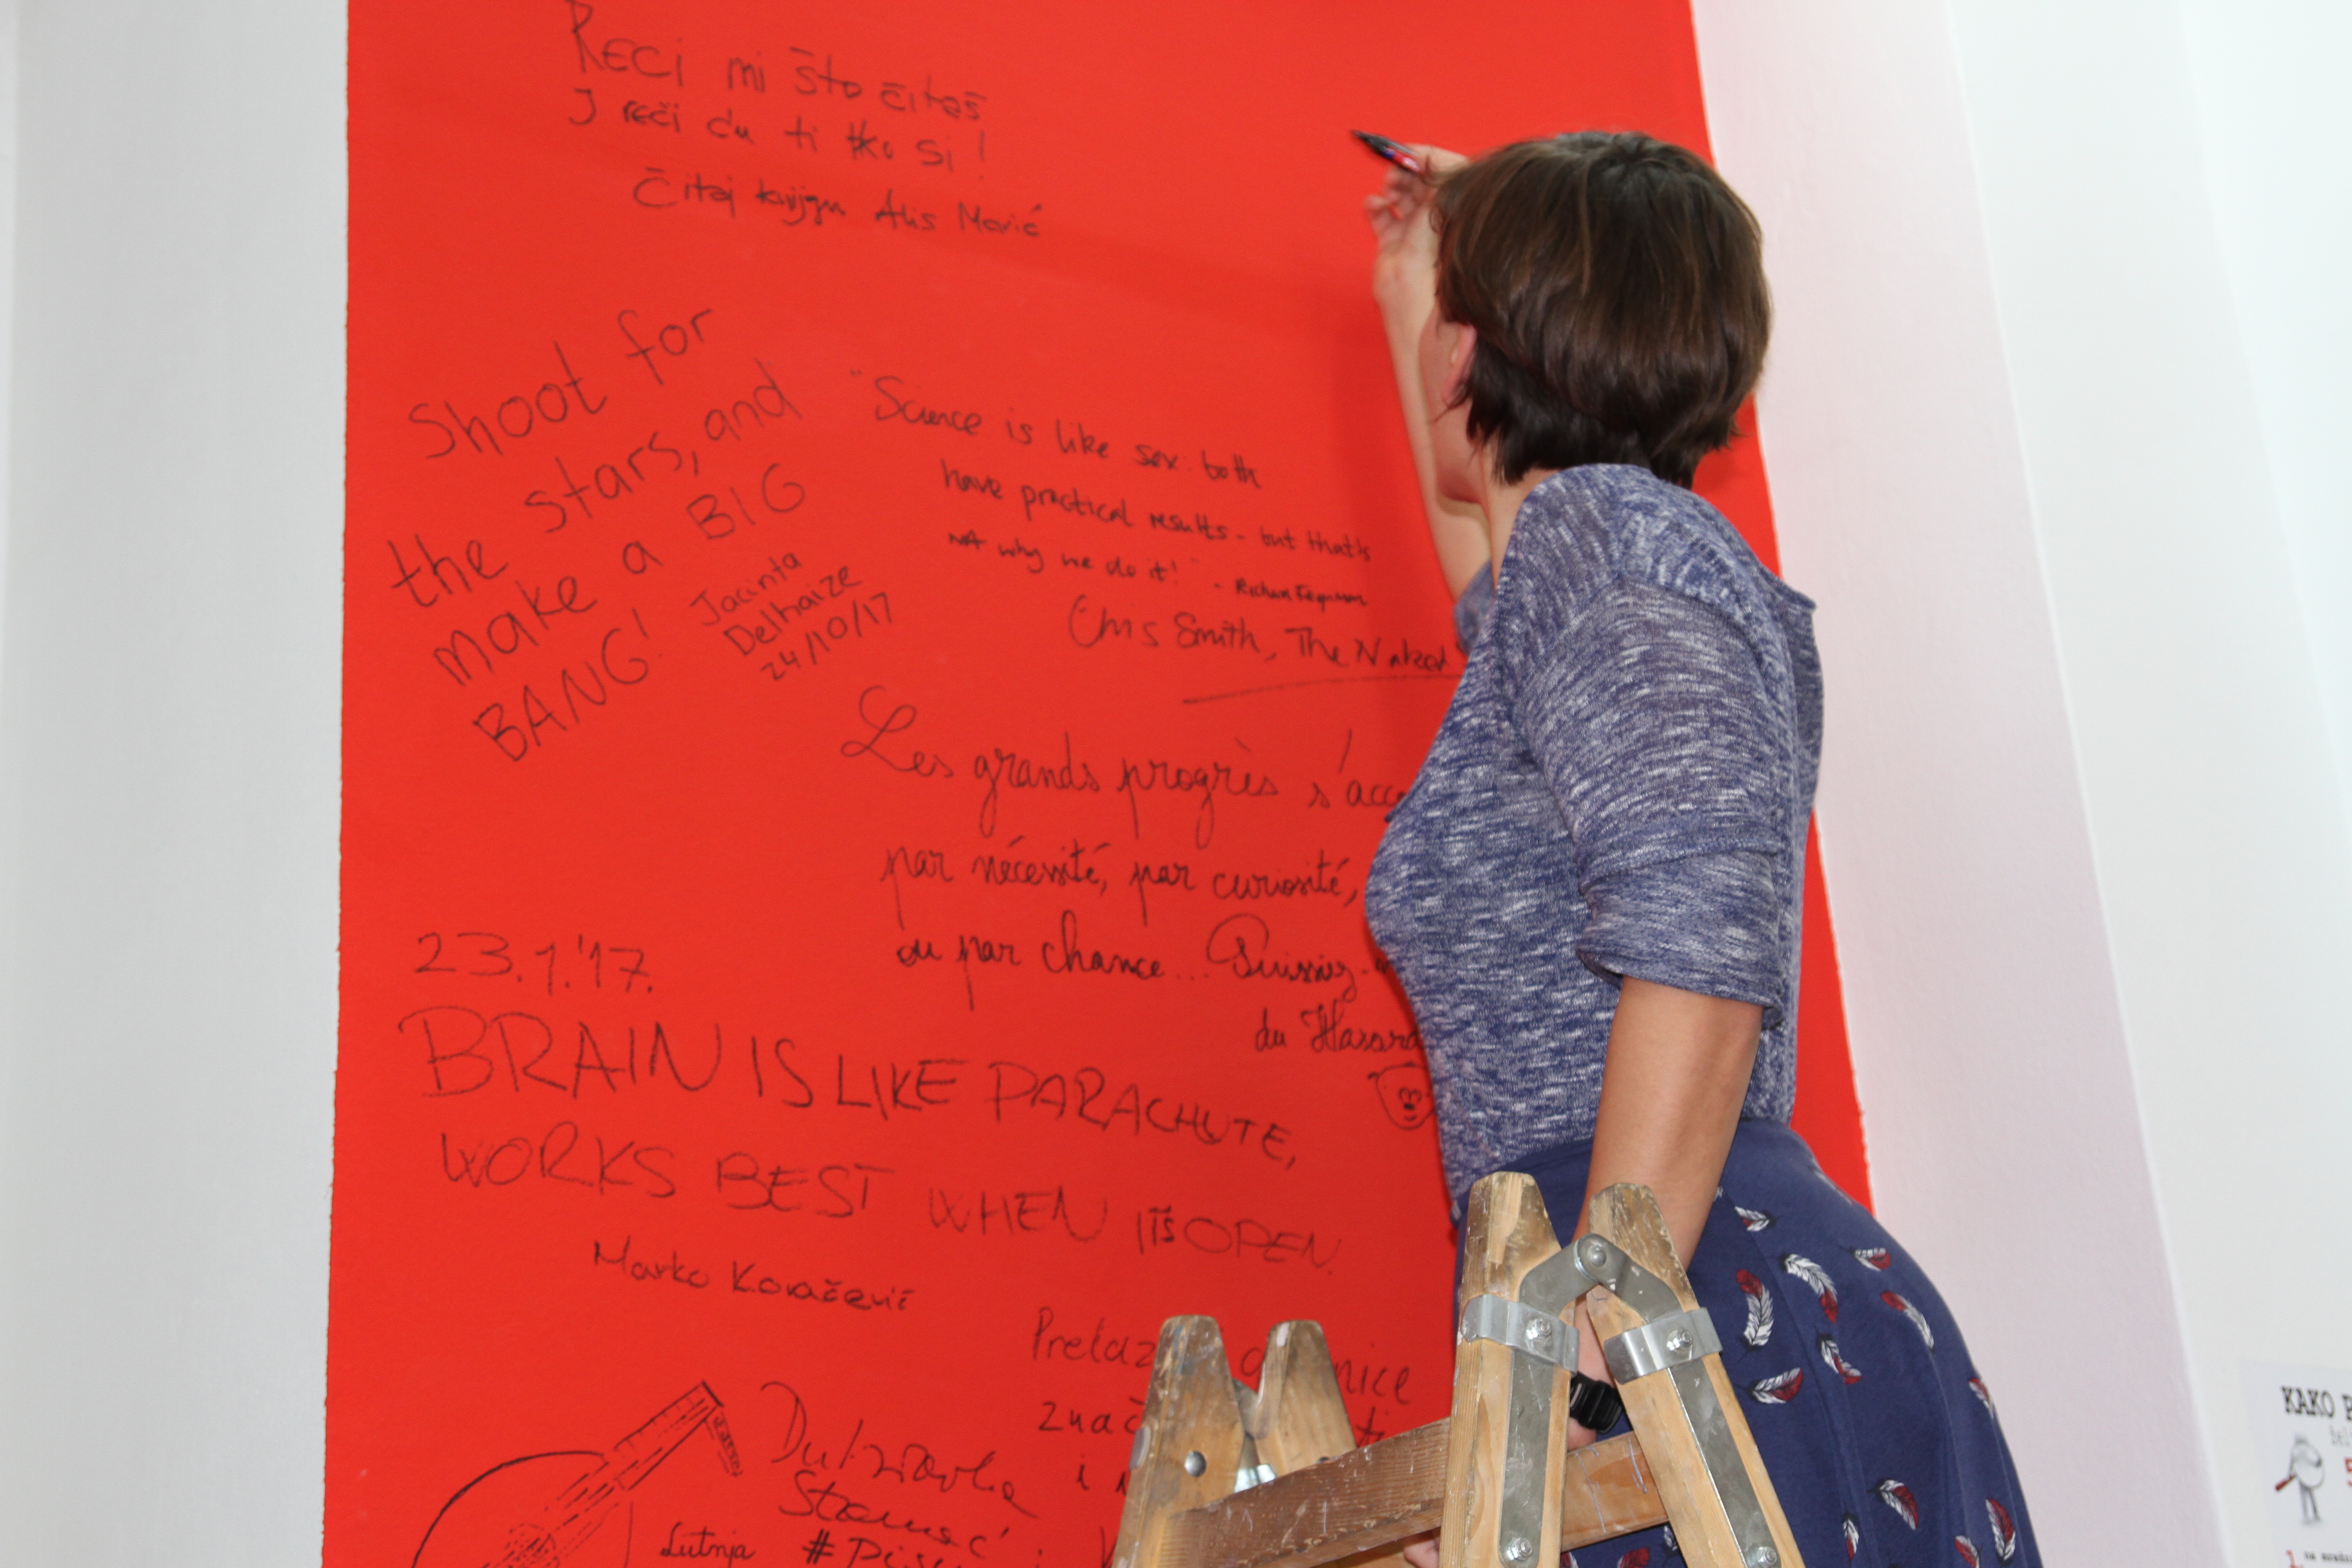 RECI mi što čitaš
I reći ću ti tko si!
Čitaj knjigu Alis Marić
Shoot for
the stars, and
make a BIG
BANG!
Jacinta
Delhaize
24/10/17
"Science is like sex: both
have practical results - but that's
not why we do it!" - Richard Feynman
Chris Smith, The Naked
Les grands progrès s'acco
par nécessité, par curiosité,
ou par chance... Puissiez-
du Hasard
23.1.'17.
BRAIN IS LIKE PARACHUTE,
WORKS BEST WHEN IT'S OPEN.
Marko Kovačević
Prelaz
nice
znač
i
Stamać
Lutnja
KAKO